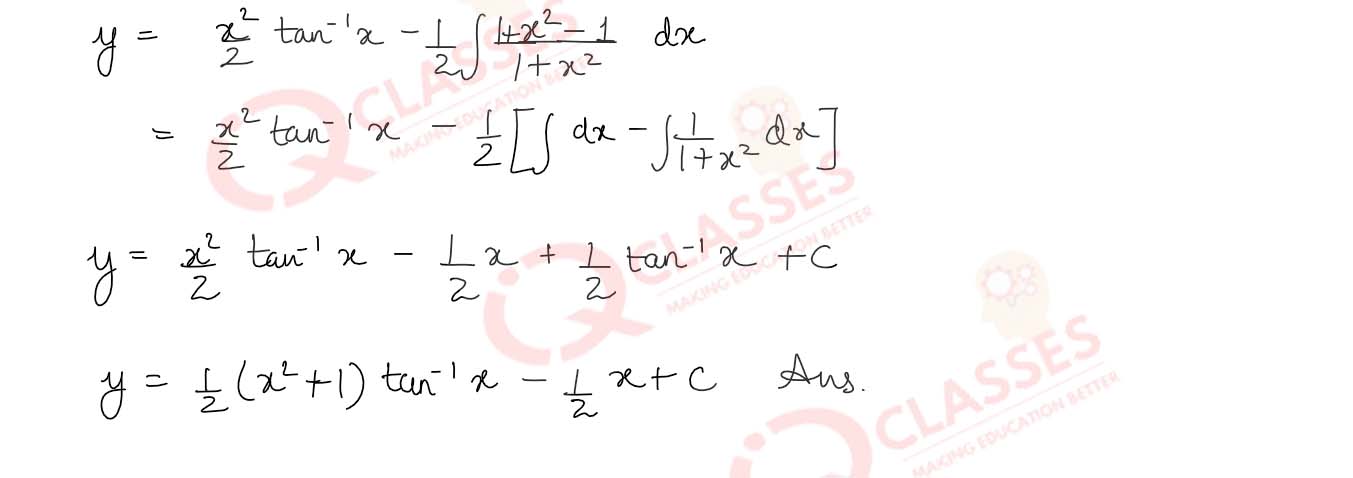 y = x²/2 tan⁻¹x - 1/2 ∫ (1+x²-1)/(1+x²) dx
= x²/2 tan⁻¹x - 1/2 [∫ dx - ∫ 1/(1+x²) dx]
y = x²/2 tan⁻¹x - 1/2 x + 1/2 tan⁻¹x + C
y = 1/2 (x²+1) tan⁻¹x - 1/2 x + C Ans.
IQ CLASSES
MAKING EDUCATION BETTER
IQ CLASSES
MAKING EDUCATION BETTER
IQ CLASSES
MAKING EDUCATION BETTER